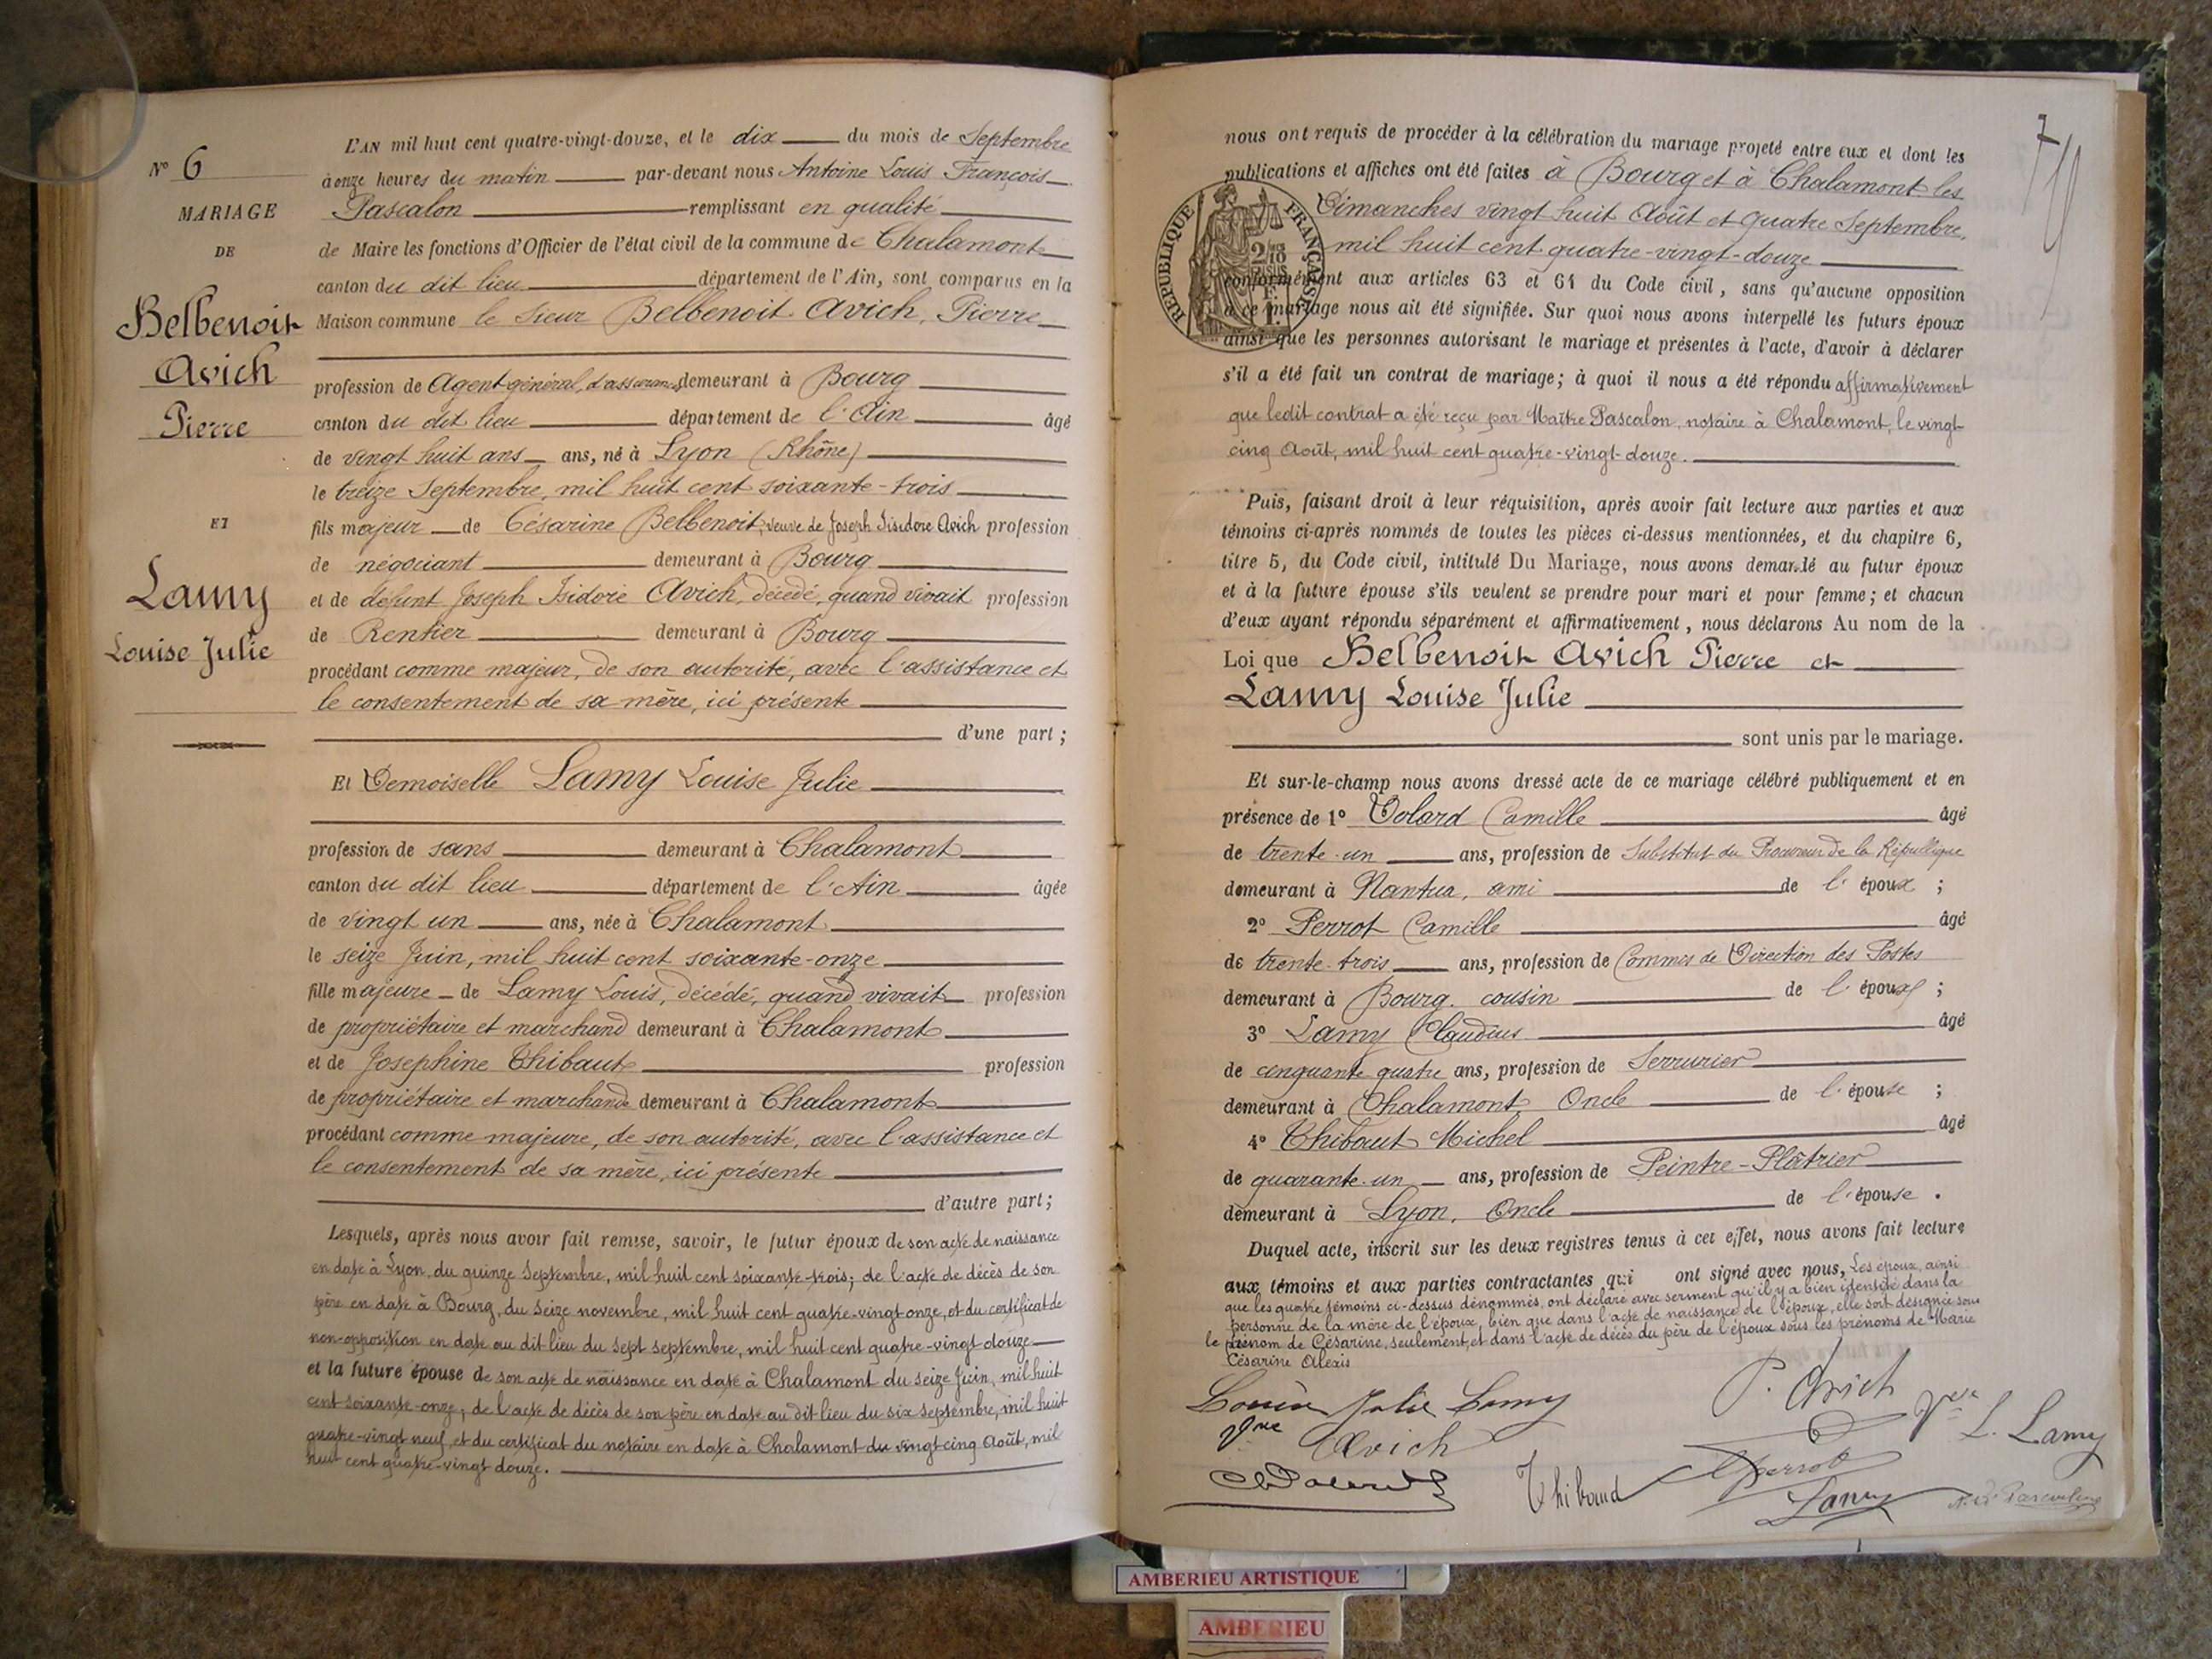 N° 6
MARIAGE
DE
Belbenoit
Avich
Pierre
ET
Lamy
Louise Julie
L'AN mil huit cent quatre-vingt-douze, et le dix du mois de Septembre
à onze heures du matin par-devant nous Antoine Louis François
Pascalon remplissant en qualité
de Maire les fonctions d'Officier de l'état civil de la commune de Chalamont
canton du dit lieu département de l'Ain, sont comparus en la
Maison commune le Sieur Belbenoit Avich, Pierre
profession de Agent général d'assurances demeurant à Bourg
canton du dit lieu département de l'Ain âgé
de vingt huit ans ans, né à Lyon (Rhône)
le treize Septembre, mil huit cent soixante-trois
fils majeur de Césarine Belbenoit, veuve de Joseph Isidore Avich profession
de négociant demeurant à Bourg
et de défunt Joseph Isidore Avich, décédé, quand vivait profession
de Rentier demeurant à Bourg
procédant comme majeur, de son autorité, avec l'assistance et
le consentement de sa mère, ici présente
d'une part ;
Et Demoiselle Lamy Louise Julie
profession de sans demeurant à Chalamont
canton du dit lieu département de l'Ain âgée
de vingt un ans, née à Chalamont
le seize Juin, mil huit cent soixante-onze
fille majeure de Lamy Louis, décédé, quand vivait profession
de propriétaire et marchand demeurant à Chalamont
et de Josephine Thibaut profession
de propriétaire et marchande demeurant à Chalamont
procédant comme majeure, de son autorité, avec l'assistance et
le consentement de sa mère, ici présente
d'autre part ;
Lesquels, après nous avoir fait remise, savoir, le futur époux de son acte de naissance
en date à Lyon du quinze Septembre, mil huit cent soixante-trois ; de l'acte de décès de son
père en date à Bourg, du seize novembre, mil huit cent quatre-vingt onze, et du certificat de
non-opposition en date au dit lieu du sept septembre, mil huit cent quatre-vingt douze
et la future épouse de son acte de naissance en date à Chalamont du seize Juin, mil huit
cent soixante-onze, de l'acte de décès de son père en date au dit lieu du six septembre, mil huit
quatre-vingt neuf, et du certificat du notaire en date à Chalamont du vingt cinq Août, mil
huit cent quatre-vingt douze.
nous ont requis de procéder à la célébration du mariage projeté entre eux et dont les
publications et affiches ont été faites à Bourg et à Chalamont les
Dimanches vingt huit Août et quatre Septembre,
mil huit cent quatre-vingt-douze
RÉPUBLIQUE FRANÇAISE
conformément aux articles 63 et 64 du Code civil, sans qu'aucune opposition
à ce mariage nous ait été signifiée. Sur quoi nous avons interpellé les futurs époux
ainsi que les personnes autorisant le mariage et présentes à l'acte, d'avoir à déclarer
s'il a été fait un contrat de mariage ; à quoi il nous a été répondu affirmativement
que ledit contrat a été reçu par Maître Pascalon, notaire à Chalamont, le vingt-
cinq Août, mil huit cent quatre-vingt-douze.
Puis, faisant droit à leur réquisition, après avoir fait lecture aux parties et aux
témoins ci-après nommés de toutes les pièces ci-dessus mentionnées, et du chapitre 6,
titre 5, du Code civil, intitulé Du Mariage, nous avons demandé au futur époux
et à la future épouse s'ils veulent se prendre pour mari et pour femme ; et chacun
d'eux ayant répondu séparément et affirmativement, nous déclarons Au nom de la
Loi que Belbenoit Avich Pierre et
Lamy Louise Julie
sont unis par le mariage.
Et sur-le-champ nous avons dressé acte de ce mariage célébré publiquement et en
présence de 1° Volard Camille âgé
de trente-un ans, profession de Substitut du Procureur de la République
demeurant à Nantua, ami de l'époux ;
2° Perrot Camille âgé
de trente-trois ans, profession de Commis de Direction des Postes
demeurant à Bourg, cousin de l'époux ;
3° Lamy Claudius âgé
de cinquante quatre ans, profession de Serrurier
demeurant à Chalamont Oncle de l'épouse ;
4° Thibaut Michel âgé
de quarante-un ans, profession de Peintre-Plâtrier
demeurant à Lyon, Oncle de l'épouse.
Duquel acte, inscrit sur les deux registres tenus à cet effet, nous avons fait lecture
aux témoins et aux parties contractantes qui ont signé avec nous, Les époux, ainsi
que les quatre témoins ci-dessus dénommés, ont déclaré avec serment qu'il y a bien identité dans la
personne de la mère de l'époux, bien que dans l'acte de naissance de l'époux, elle soit désignée sous
le prénom de Césarine, seulement, et dans l'acte de décès du père de l'époux sous les prénoms de Marie
Césarine Alexis
Louise Julie Lamy
P. Avich
Vve L. Lamy
Vve Avich
Thibaud
Perrot
Lamy
AMBERIEU ARTISTIQUE
AMBERIEU